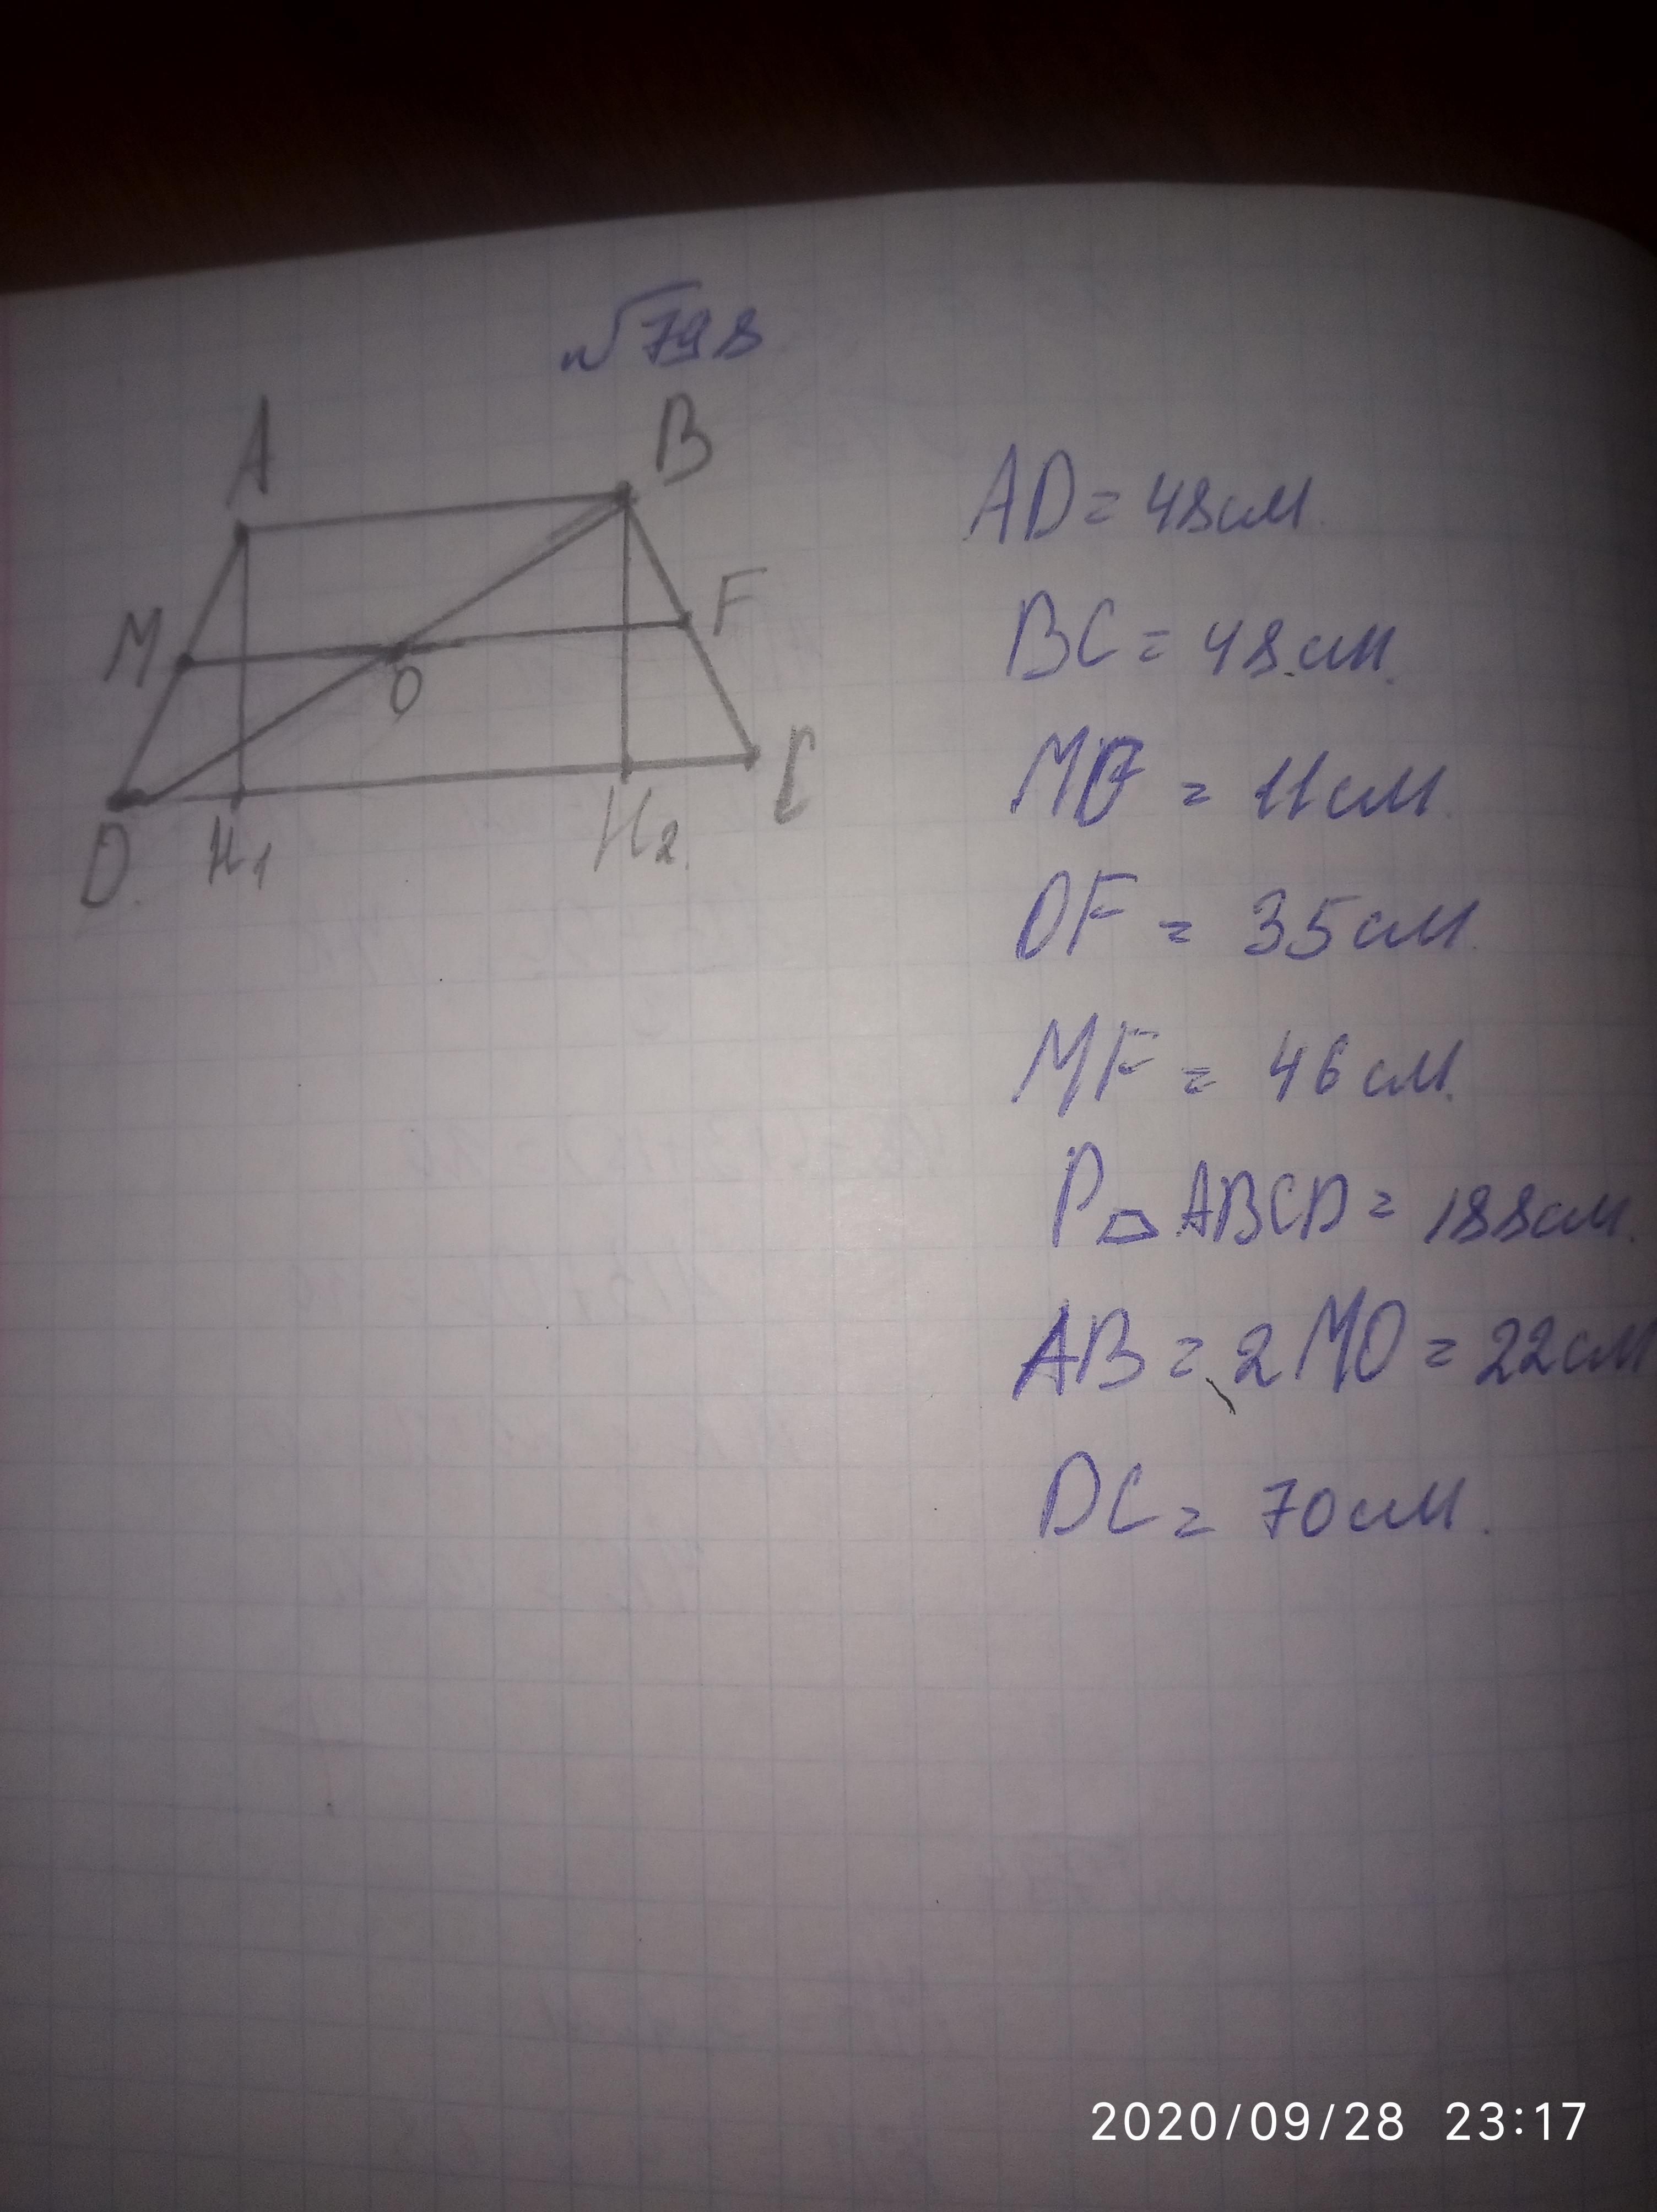 √798
A
B
M
F
O
C
D.
H1
H2.
AD = 48см.
BC = 48см.
MO = 11см.
OF = 35см.
MF = 46см.
P ABCD = 188см.
AB = 2MO = 22см
DC = 70см.
2020/09/28 23:17